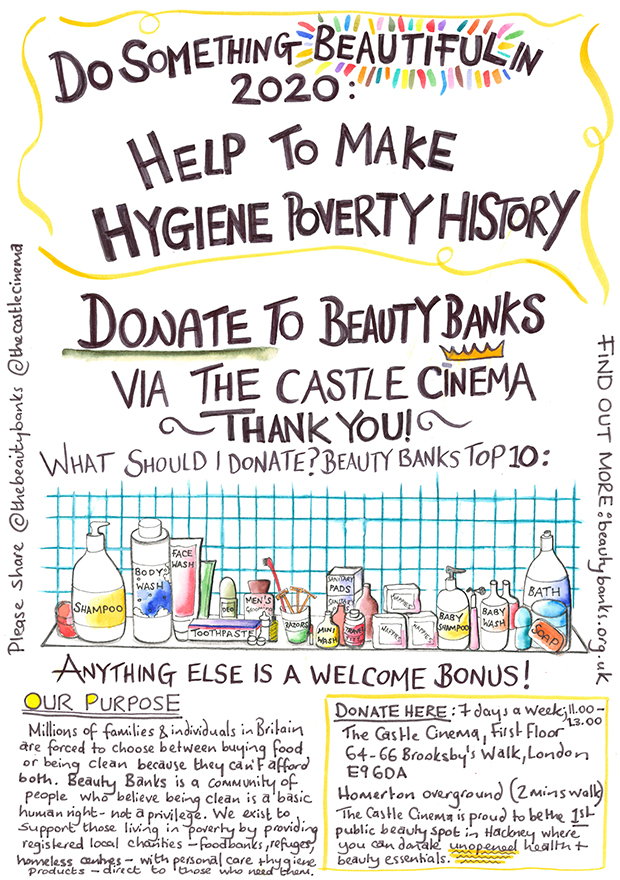 DO SOMETHING BEAUTIFUL IN
2020:
HELP TO MAKE
HYGIENE POVERTY HISTORY
DONATE TO BEAUTY BANKS
VIA THE CASTLE CINEMA
THANK YOU!
WHAT SHOULD I DONATE? BEAUTY BANKS TOP 10:
SHAMPOO
BODY
WASH
FACE
WASH
TOOTHPASTE
DEO
MEN'S
RAZORS
MINI
WASH
SANITARY
PADS
NAPPIES
NAPPIES
NAPPIES
NAPPIES
BABY
SHAMPOO
BABY
WASH
BATH
SOAP
ANYTHING ELSE IS A WELCOME BONUS!
OUR PURPOSE
Millions of families & individuals in Britain
are forced to choose between buying food
or being clean because they can't afford
both. Beauty Banks is a community of
people who believe being clean is a basic
human right - not a privilege. We exist to
support those living in poverty by providing
registered local charities - foodbanks, refuges,
homeless centres - with personal care + hygiene
products - direct to those who need them.
DONATE HERE: 7 days a week; 11.00-
23.00
The Castle Cinema, First Floor
64-66 Brooksby's Walk, London
E9 6DA
Homerton overground (2 mins walk)
The Castle Cinema is proud to be the 1st
public beauty spot in Hackney where
you can donate unopened health +
beauty essentials.
Please Share @thebeautybanks @thecastlecinema
FIND OUT MORE: beautybanks.org.uk